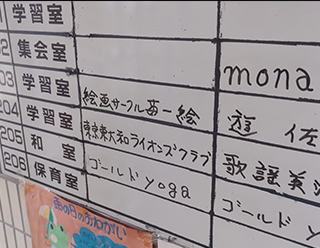 1 学習室
2 集会室 mona
03 学習室 絵画サークル苗一絵
204 学習室 東京東大和ライオンズクラブ 遊 佐
205 和 室 歌謡美
206 保育室 ゴールドyoga ゴールドy
雨の日の